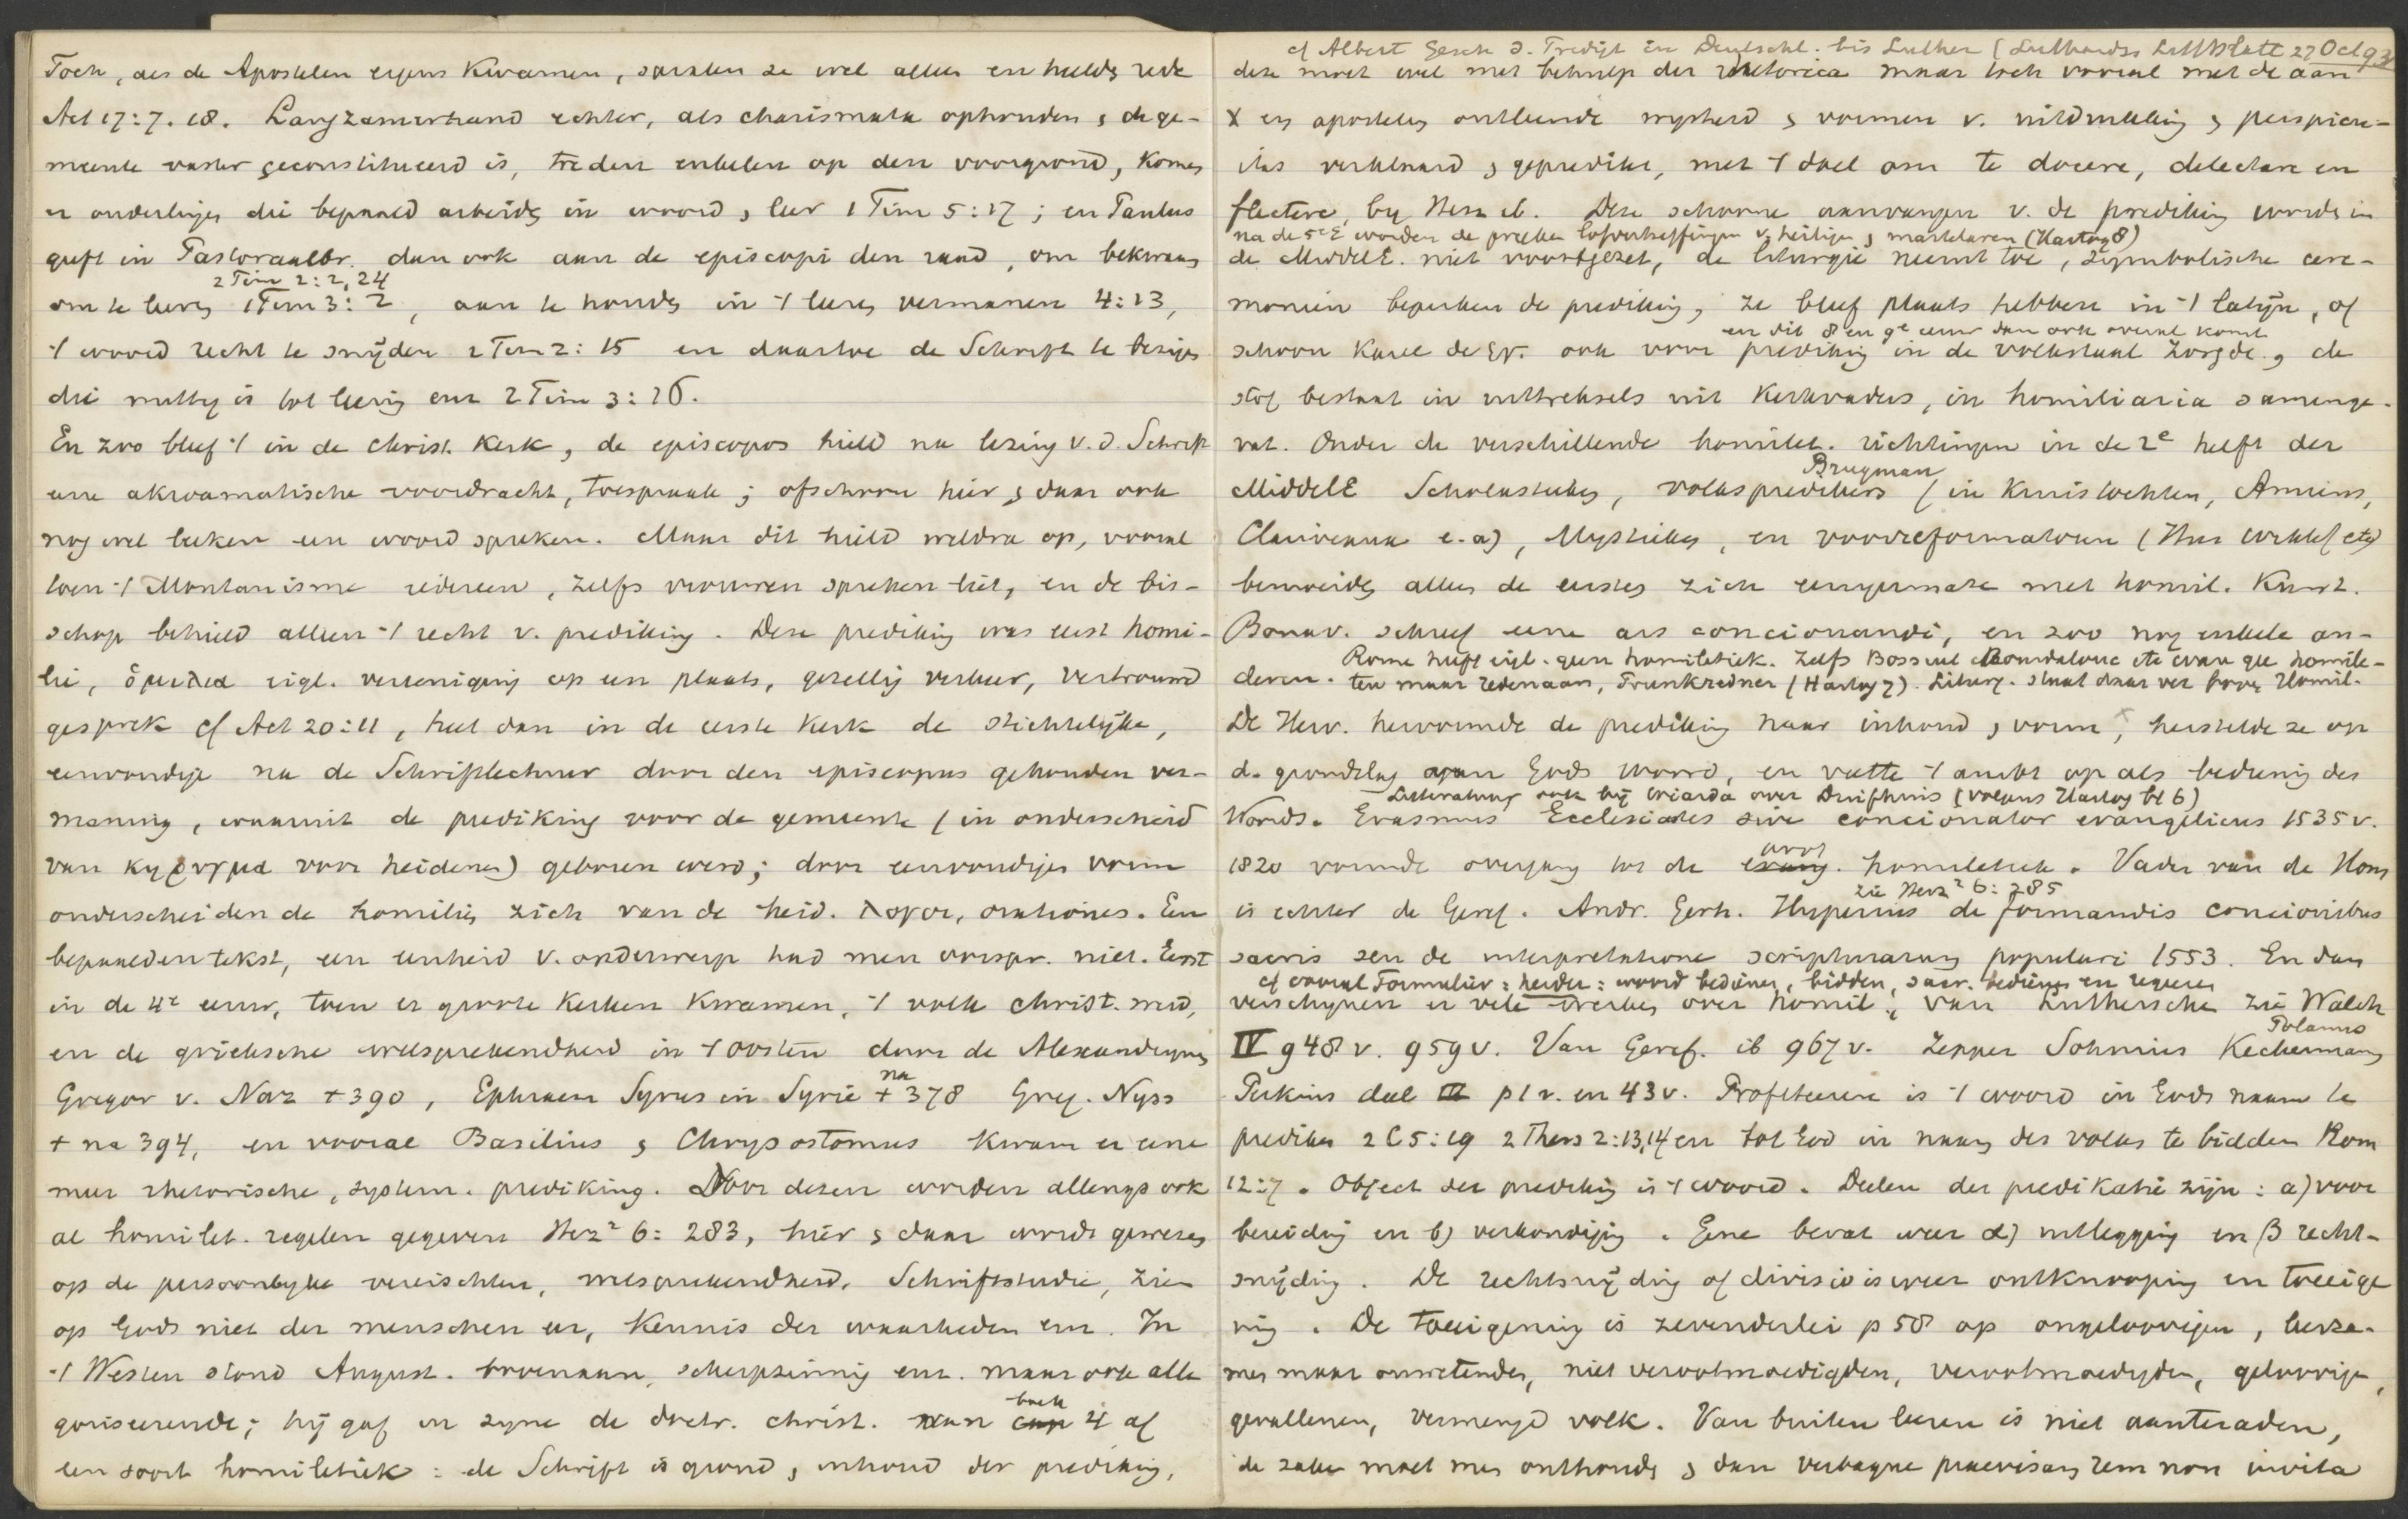 Toch, als de Apostelen ergens kwamen, spraken ze wel alleen en hielden rede
Act 17:7. 18. Langzamerhand echter, als charismata ophouden, de ge-
meente vaster geconstitueerd is, treden enkelen op den voorgrond, komen
er ouderlingen die bepaald arbeiden in woord, leer 1 Tim 5:17; en Paulus
geeft in Pastoraalbr. dan ook aan de episcopi den raad, om bekwaam
2 Tim 2:2, 24
om te leeren 1 Tim 3:2, aan te houden in 't leeren, vermanen 4:13,
't woord recht te snijden 2 Tim 2:15 en daartoe de Schrift te bezigen
die nuttig is tot leering enz 2 Tim 3:16.
En zoo bleef 't in de christ. Kerk, de episcopos hield na lezing v.d. Schrift
eene akroamatische voordracht, toespraak; ofschoon hier, daar ook
nog wel leeken een woord spraken. Maar dit hield weldra op, vooral
toen 't Montanisme iedereen, zelfs vrouwen spreken liet, en de bis-
schop behield alleen 't recht v. prediking. Deze prediking was eerst homi-
lie, ὁμιλια eigl. vereeniging op een plaats, gezellig verkeer, vertrouwd
gesprek cf Act 20:11, heet dan in de eerste kerk de stichtelijke,
eenvoudige na de Schriftlectuur door den episcopus gehouden ver-
maning, waaruit de prediking voor de gemeente (in onderscheid
van κηρυγμα voor heidenen) geboren werd; door eenvoudigen vorm
onderscheidde de homilie zich van de heid. λογοι, orationes. Een
bepaalden tekst, een eenheid v. onderwerp had men oorspr. niet. Eerst
in de 4e eeuw, toen er groote kerken kwamen, 't volk christ. werd,
en de grieksche welsprekendheid in 't oosten door de Alexandrijnen
Gregor v. Naz +390, Ephraem Syrus in Syrië + na 378 Greg. Nyss
+ na 394, en vooral Basilius, Chrysostomus kwam er eene
meer rhetorische, system. prediking. Door dezen worden allengs ook
al homilet. regelen gegeven Herz² 6:283, hier, daar wordt gewezen
op de persoonlijke vereischten, welsprekendheid, Schriftstudie, zien
op Gods niet der menschen eer, kennis der waarheden enz. In
't Westen stond August. bovenaan, scherpzinnig enz. maar ook alle-
goriseerende; hij gaf in zijne de doctr. christ. boek 4 al
een soort homiletiek: de Schrift is grond, inhoud der prediking,
cf Albert Gesch d. Predigt in Deutschl. bis Luther (Luthardts Littblatt 27 Oct 93
deze moet wel met behulp der rhetorica maar toch vooral met de aan
X en apostelen ontleende wijsheid, vormen v. uitdrukking, perspicu-
itas verklaard, gepredikt, met 't doel om te docere, delectare en
flectere, by Herz ib. Deze schoone aanvangen v. de prediking worden in
na de 5e E worden de preeken lofverheffingen v. heiligen, martelaren (Hartog 8)
de MiddelE. niet voortgezet, de liturgie neemt toe, symbolische cere-
moniën beperken de prediking, ze bleef plaats hebben in 't latijn, of
en dit 8 en 9e eeuw dan ook overal komt
schoon Karel de Gr. ook voor prediking in de volkstaal zorgde, de
stof bestaat in uittreksels uit kerkvaders, in homiliaria samenge-
vat. Onder de verschillende homilet. richtingen in de 2e helft der
Brugman
MiddelE Scholastieken, volkspredikers (in kruistochten, Amiens,
Clairvaux e.a), Mystieken, en voorreformatoren (Hus Wiklef etc)
bemoeiden alleen de eersten zich eenigermate met homil. Kunst.
Bonav. schreef eene ars concionandi, en zoo nog enkele an-
Rome heeft eigl. geen homiletiek. Zelfs Bossuet Bourdaloue etc waren gee homile-
deren. ten maar redenaars, Prunkredner (Hartog 7). Liturg. staat daar ver boven Homil.
De Herv. hervormde de prediking naar inhoud, vorm, herstelde ze op
d. grondslag van Gods Woord, en vatte 't ambt op als bediening des
Litteratuur ook bij Wiarda over Duifhuis (volgens Hartog bl 6)
Woords. Erasmus Ecclesiastes sive concionator evangelicus 1535 v.
1820 vormde overgang tot de prot. homiletiek. Vader van de Hom
zie Herz² 6:285
is echter de Geref. Andr. Gerh. Hyperius de formandis concionibus
sacris seu de interpretatione scripturarum populari 1553. En dan
cf vooral Formulier: herder: woord bedienen, bidden, sacr. bedienen en regeeren
verschijnen er vele werken over homil., van Luthersche zie Walch
Polanus
IV 948 v. 959 v. Van Geref. ib 967 v. Zepper Sohnius Keckermann
Perkins deel III p 1 v. en 43 v. Profeteeren is 't woord in Gods naam te
prediken 2 C 5:19 2 Thess 2:13,14 en tot God in naam des volks te bidden Rom
12:7. Object der prediking is 't woord. Deelen der predikatie zijn: a) voor
bereiding en b) verkondiging. Gene bevat weer α) uitlegging en β recht-
snijding. De rechtsnijding of divisio is weer ontknooping en toeeige
ning. De toeeigening is zevenderlei p 58 op ongeloovigen, leerza-
men maar onwetenden, niet verootmoedigden, verootmoedigden, geloovigen,
gevallenen, vermengd volk. Van buiten leeren is niet aanteraden,
de zaken moet men onthouden, dan verbaque praevisam rem non invita